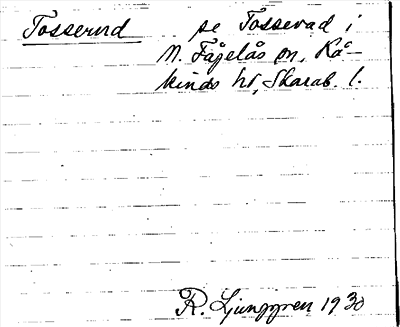 Tosserud se Tossevad i
N. Fågelås sn, Kå-
kinds hd, Skarab. l.
R. Ljunggren 1930